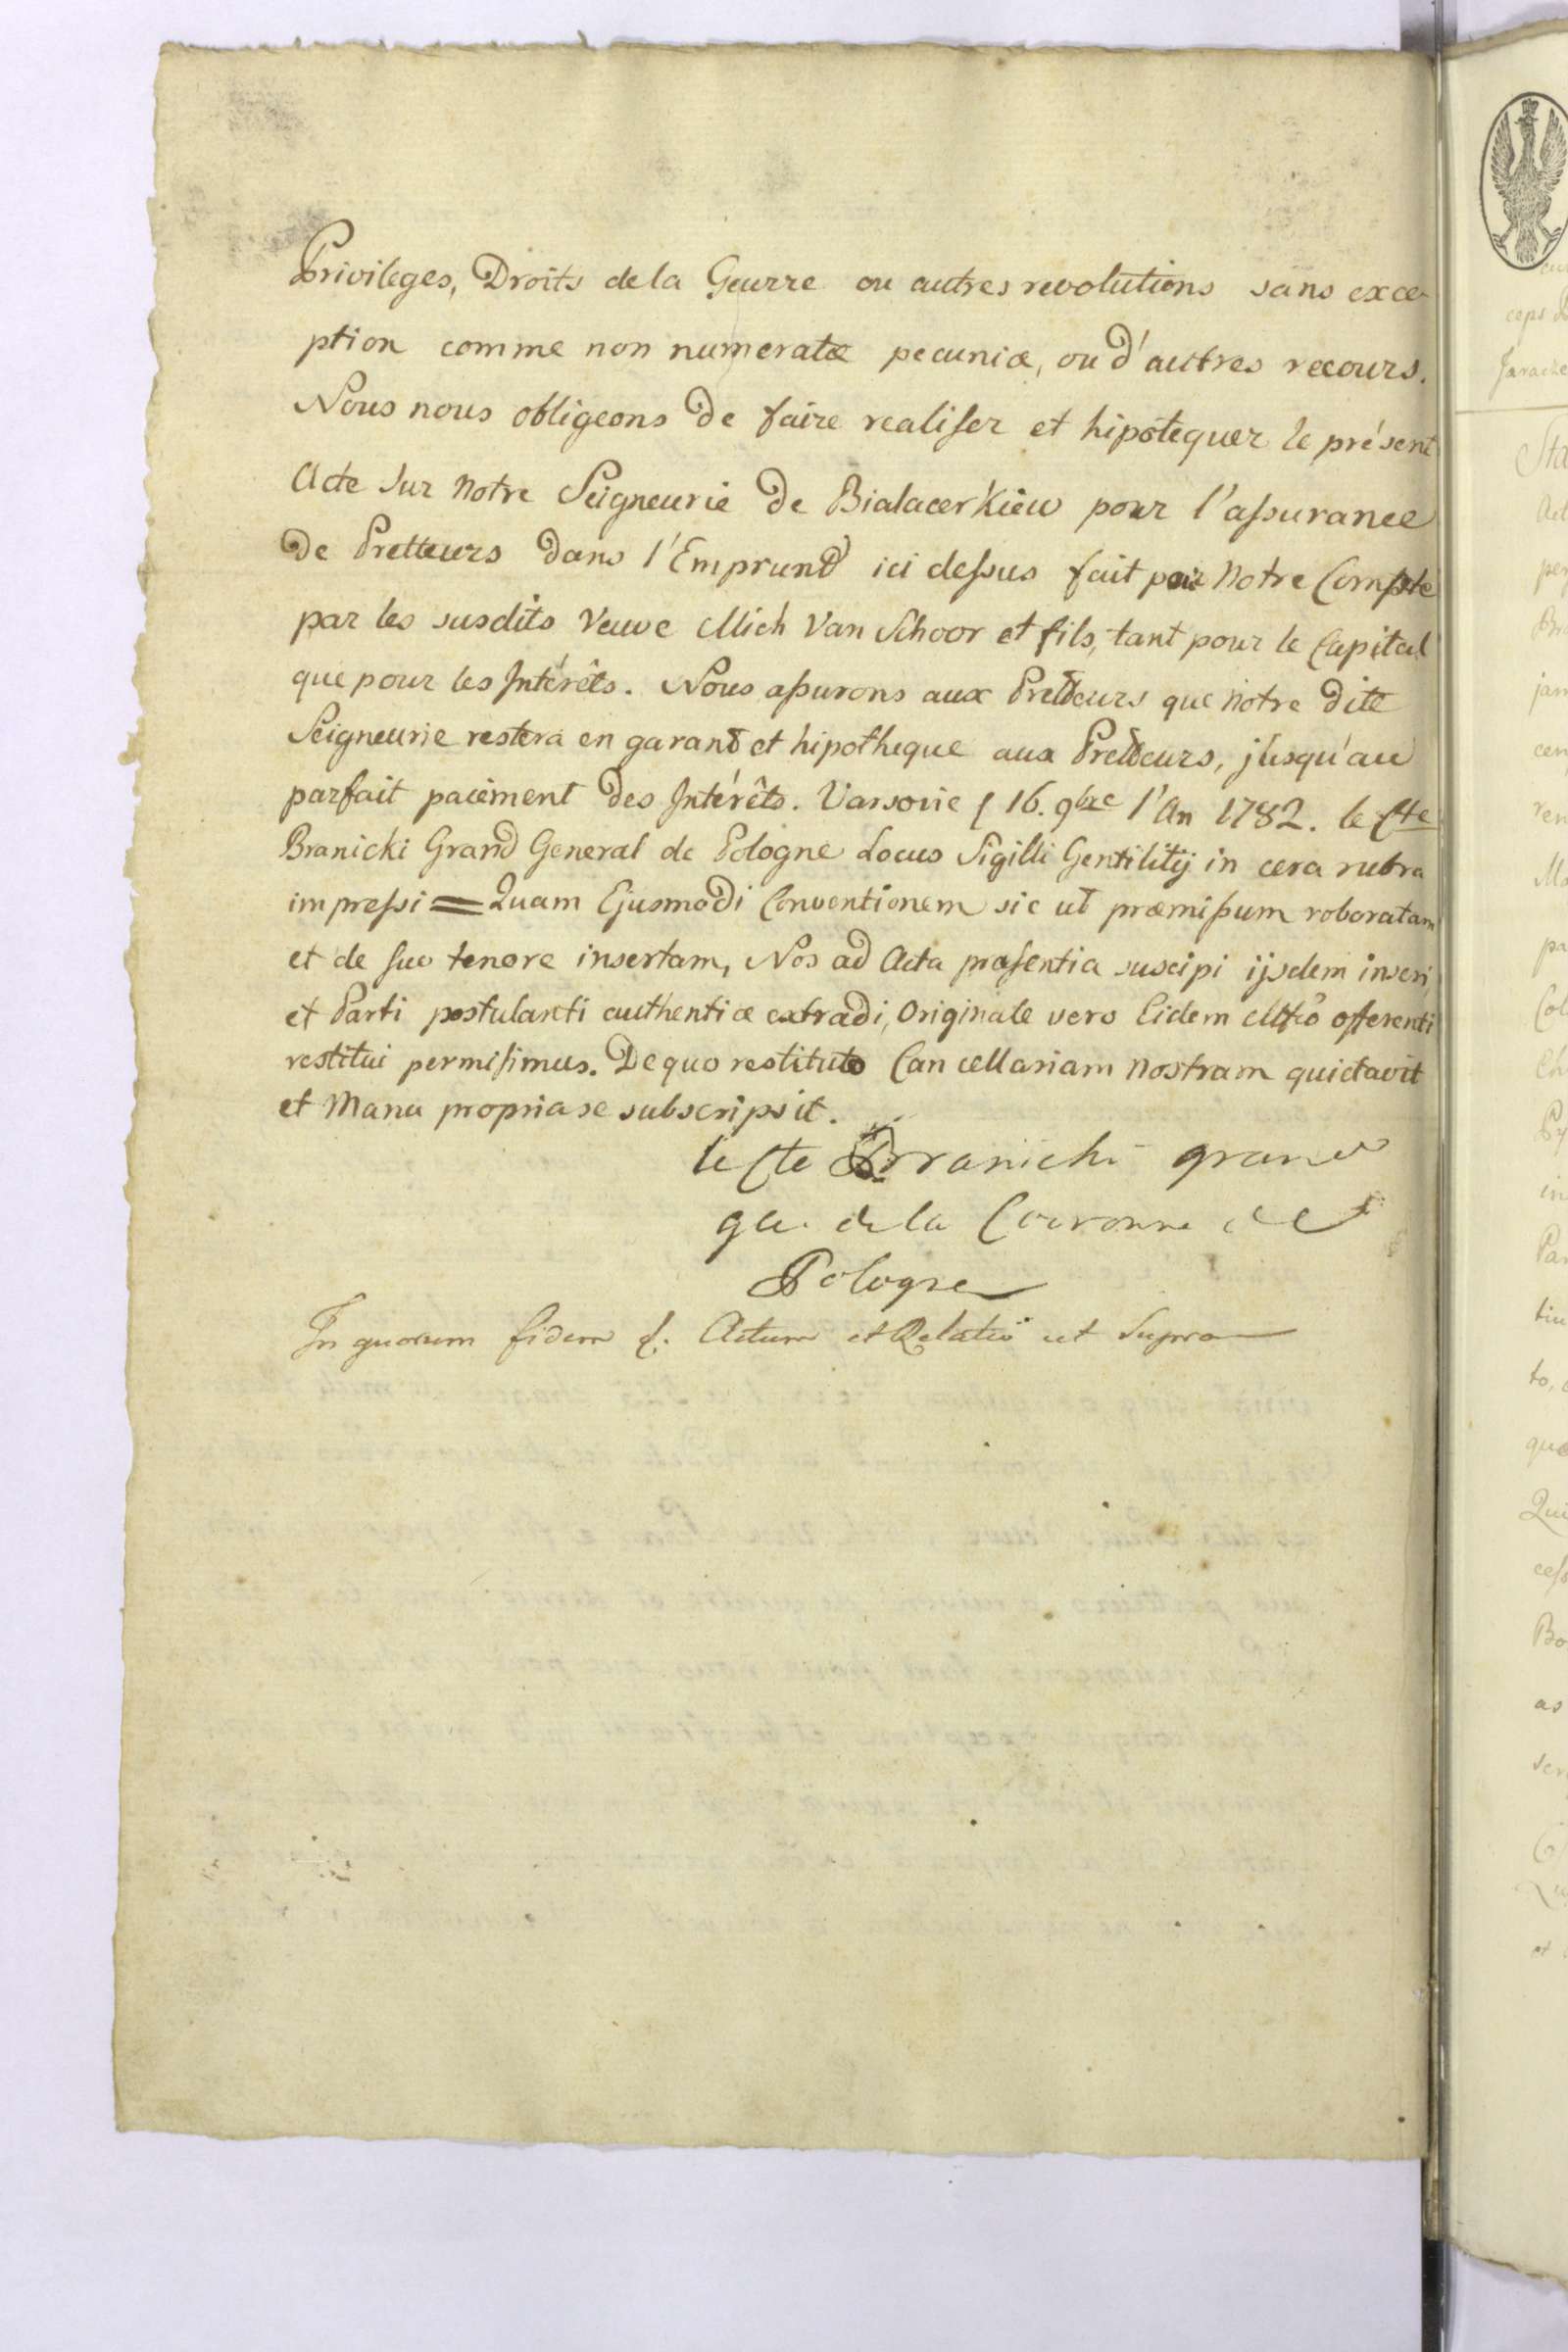 Privileges, Droits de la Geurre ou autres revolutions sans exce-
ption comme non numeratæ pecuniæ, ou d'autres recours.
Nous nous obligeons de faire realiser et hipotequer le présent
Acte sur notre Seigneurie de Bialacerkiew pour l'assurance
de Pretteurs dans l'Emprund ici dessus fait pour notre Compte
par les susdits Veuve Mich Van Schoor et fils, tant pour le Capital
que pour les Intérêts. Nous assurons aux Pretteurs que notre dite
Seigneurie restera en garant et hipotheque aux Pretteurs, jusqu'au
parfait paiement des Intérêts. Varsovie ( 16. 9bre l'An 1782. le Cte
Branicki Grand General de Pologne Locus Sigilli Gentilitij in cera rubra
impressi = Quam Ejusmodi Conventionem sic ut præmissum roboratam
et de suo tenore insertam, Nos ad Acta præsentia suscipi ijsdem inseri,
et Parti postulanti authenticæ extradi, Originale vero Eidem offerenti
restitui permisimus. De quo restituto Cancellariam nostram quietavit
et Manu propria se subscripsit.
le Cte Branicki grand
de la Couronne de
Pologne
In quorum fidem &. Actum et Relatio ut Supra